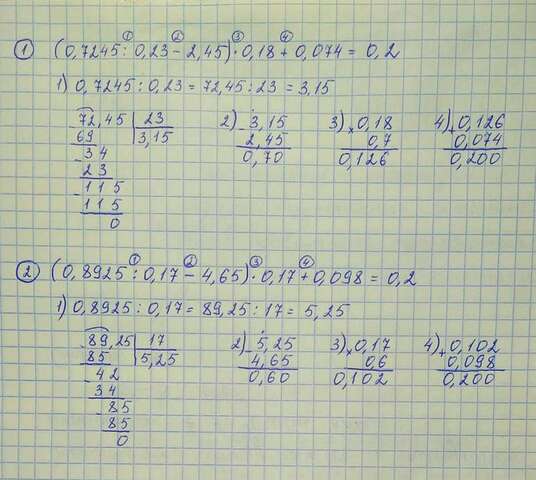 ① (0,7245 : 0,23 − 2,45) · 0,18 + 0,074 = 0,2
① ② ③ ④
1) 0,7245 : 0,23 = 72,45 : 23 = 3,15
72,45 | 23
69 3,15
- 34
23
- 115
115
0
2) - 3,15
2,45
0,70
3) × 0,18
0,7
0,126
4) + 0,126
0,074
0,200
② (0,8925 : 0,17 − 4,65) · 0,17 + 0,098 = 0,2
① ② ③ ④
1) 0,8925 : 0,17 = 89,25 : 17 = 5,25
- 89,25 | 17
85 5,25
- 42
34
- 85
85
0
2) - 5,25
4,65
0,60
3) × 0,17
0,6
0,102
4) + 0,102
0,098
0,200